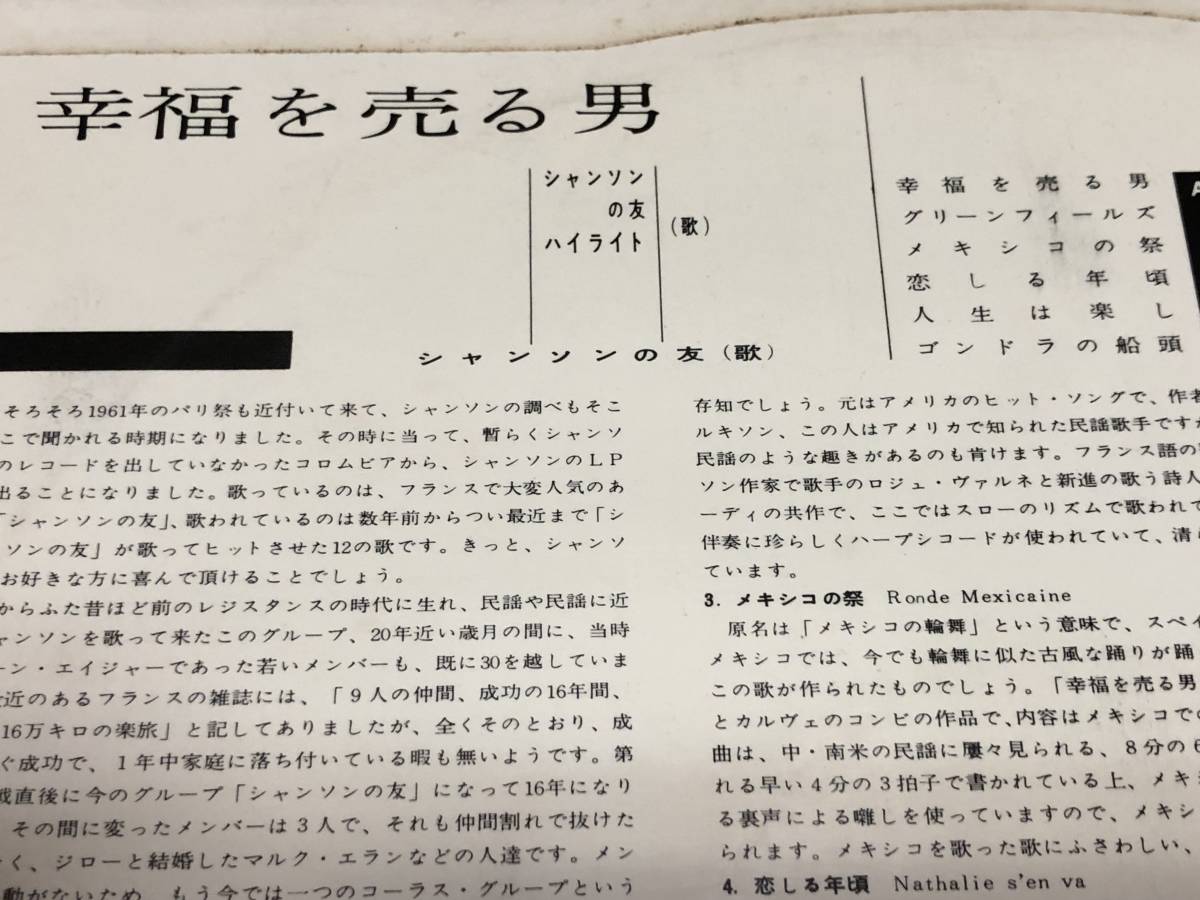 幸福を売る男
シャンソン
の友
ハイライト
(歌)
幸福を売る男
グリーンフィールズ
メキシコの祭
恋しる年頃
人生は楽し
ゴンドラの船頭
A
シャンソンの友(歌)
そろそろ1961年のパリ祭も近付いて来て、シャンソンの調べもそこ
こで聞かれる時期になりました。その時に当って、暫らくシャンソ
のレコードを出していなかったコロムビアから、シャンソンのLP
出ることになりました。歌っているのは、フランスで大変人気のあ
「シャンソンの友」、歌われているのは数年前からつい最近まで「シ
ソンの友」が歌ってヒットさせた12の歌です。きっと、シャンソ
お好きな方に喜んで頂けることでしょう。
からふた昔ほど前のレジスタンスの時代に生れ、民謡や民謡に近
ャンソンを歌って来たこのグループ、20年近い歳月の間に、当時
ーン・エイジャーであった若いメンバーも、既に30を越していま
近のあるフランスの雑誌には、「9人の仲間、成功の16年間、
16万キロの楽旅」と記してありましたが、全くそのとおり、成
ぐ成功で、1年中家庭に落ち付いている暇も無いようです。第
戦直後に今のグループ「シャンソンの友」になって16年になり
その間に変ったメンバーは3人で、それも仲間割れで抜けた
く、ジローと結婚したマルク・エランなどの人達です。メン
動がないため、もう今では一つのコーラス・グループという
存知でしょう。元はアメリカのヒット・ソングで、作者
ルキソン、この人はアメリカで知られた民謡歌手ですか
民謡のような趣きがあるのも肯けます。フランス語の
ソン作家で歌手のロジェ・ヴァルネと新進の歌う詩人
ーディの共作で、ここではスローのリズムで歌われて
伴奏に珍らしくハープシコードが使われていて、清
ています。
3. メキシコの祭 Ronde Mexicaine
原名は「メキシコの輪舞」という意味で、スペイ
メキシコでは、今でも輪舞に似た古風な踊りが踊
この歌が作られたものでしょう。「幸福を売る男
とカルヴェのコンビの作品で、内容はメキシコでの
曲は、中・南米の民謡に屢々見られる、8分の6
れる早い4分の3拍子で書かれている上、メキ
る裏声による囃しを使っていますので、メキシ
られます。メキシコを歌った歌にふさわしい、
4. 恋しる年頃 Nathalie s'en va